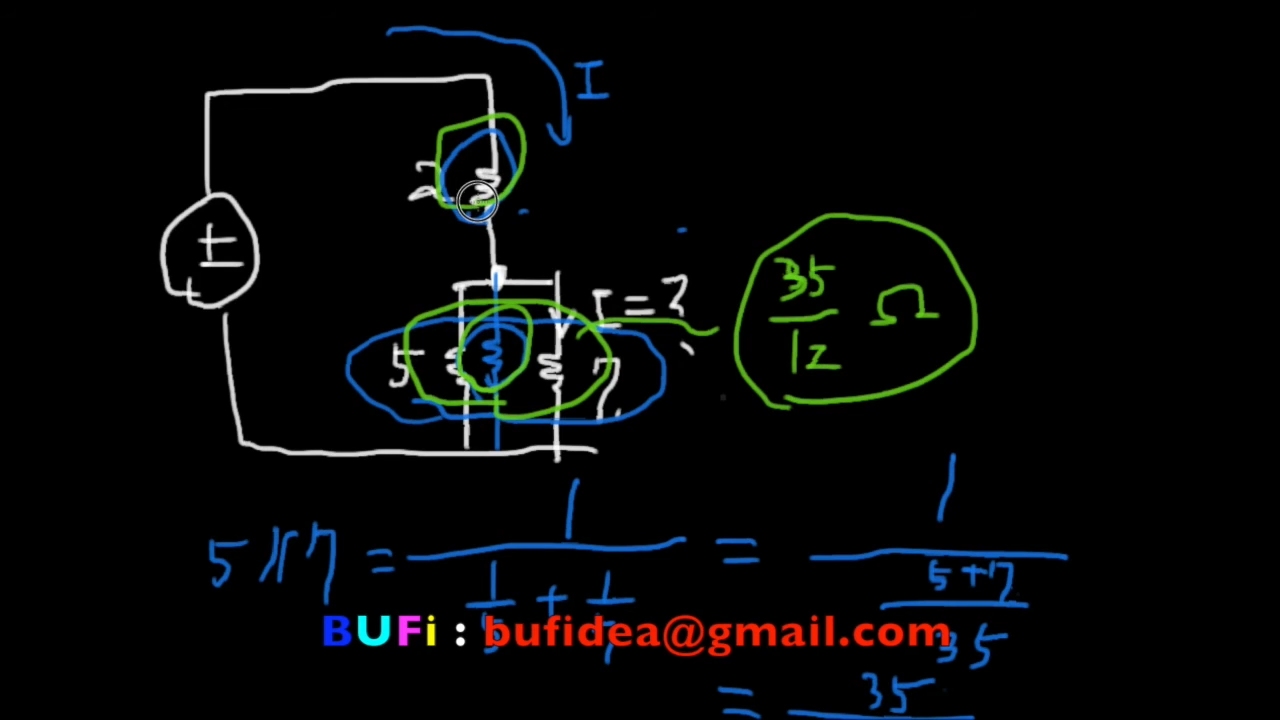 I
2
±
I = ?
5
7
35/12 Ω
5 // 7 = 1/(1/5 + 1/7) = 1/((5+7)/35)
BUFi : bufidea@gmail.com
= 35